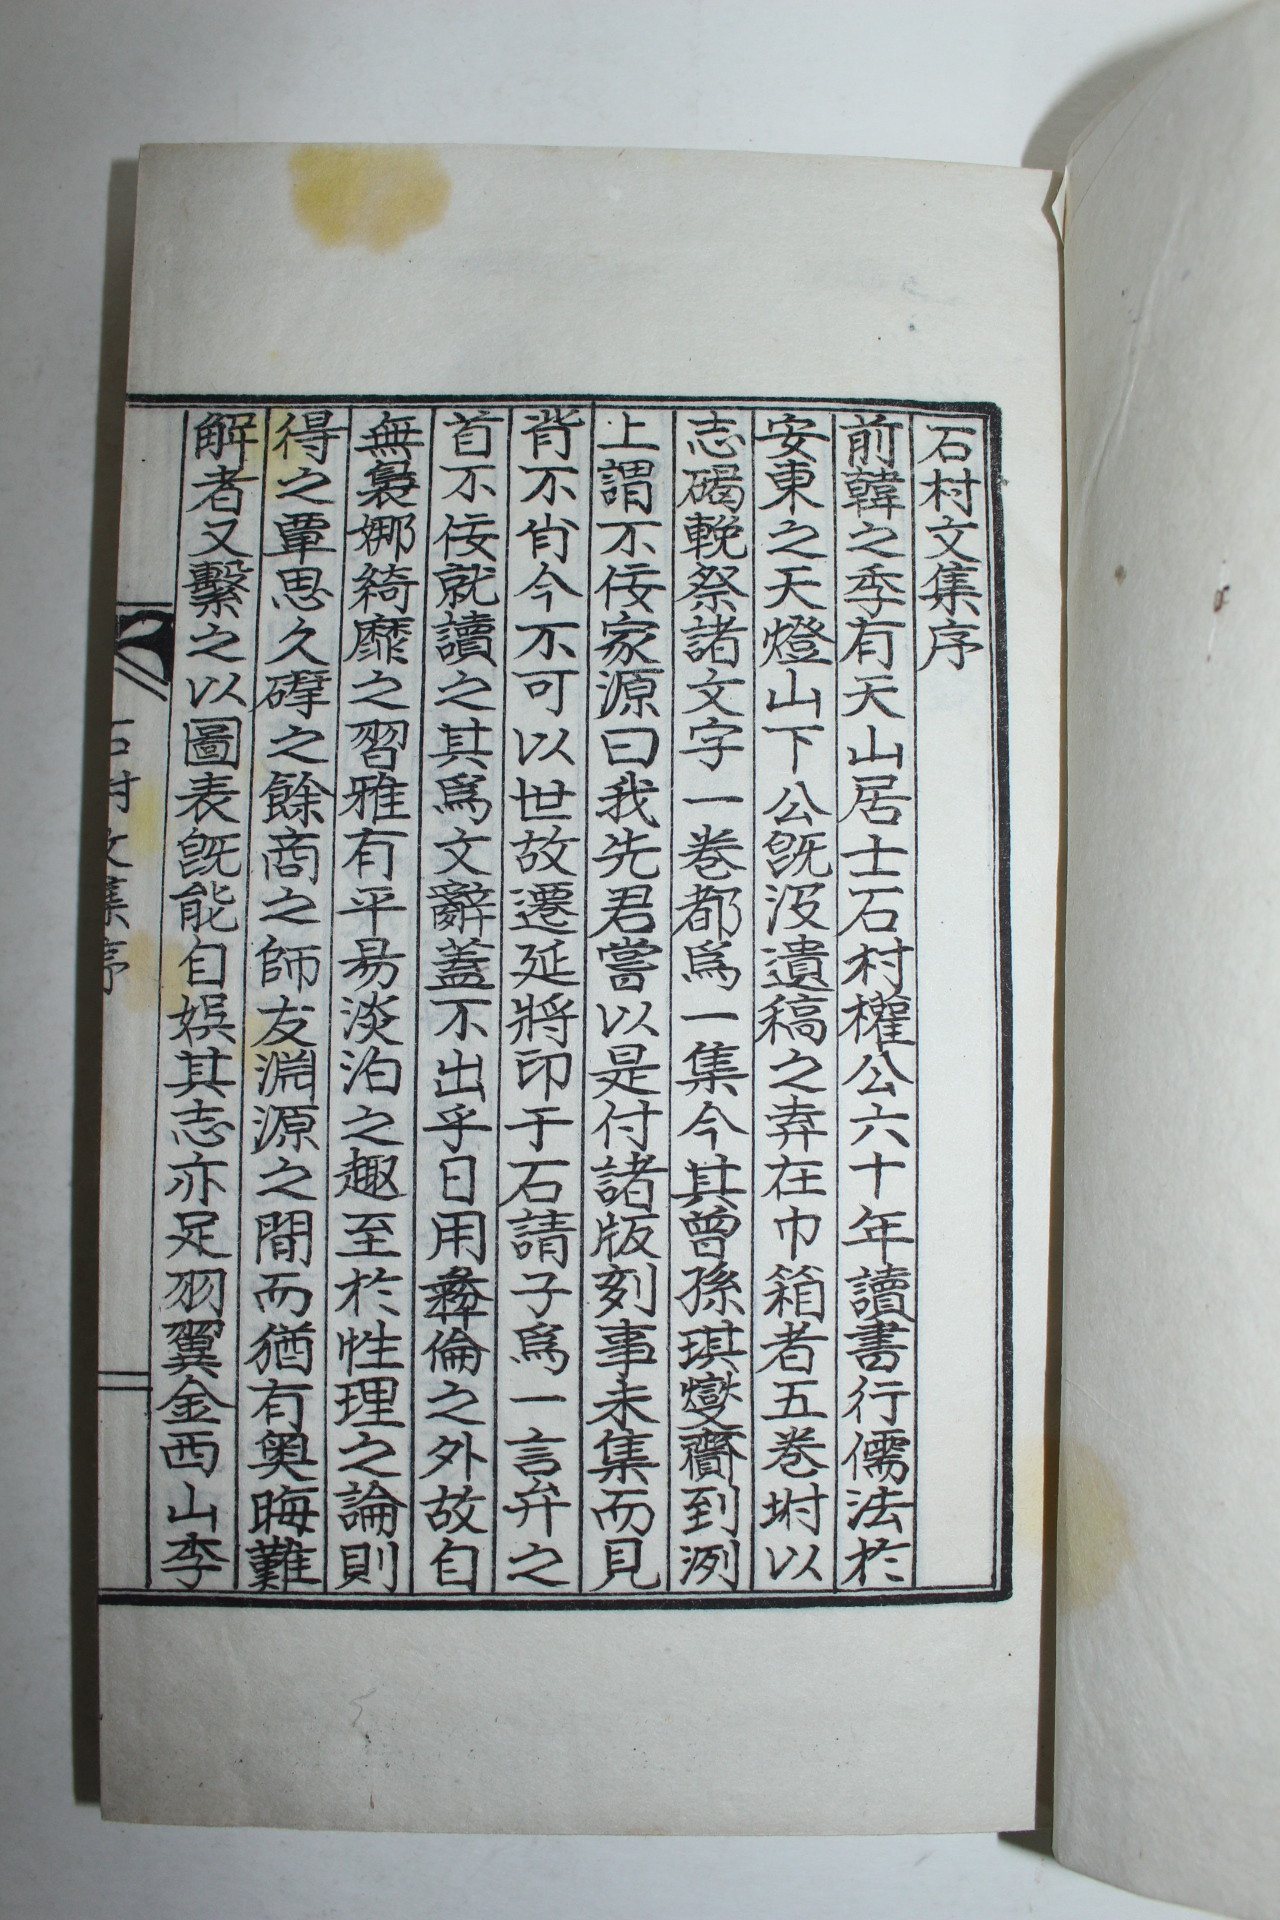 石村文集序
前韓之季有天山居士石村權公六十年讀書行儒法於
安東之天燈山下公旣沒遺稿之弆在巾箱者五卷坿以
志碣輓祭諸文字一卷都爲一集今其曾孫琪燮齎到洌
上謂不佞家源曰我先君嘗以是付諸版刻事未集而見
背不肖今不可以世故遷延將印于石請子爲一言弁之
首不佞就讀之其爲文辭蓋不出乎日用彝倫之外故自
無裊娜綺靡之習雅有平易淡泊之趣至於性理之論則
得之覃思久硻之餘商之師友淵源之間而猶有奧晦難
解者又繫之以圖表旣能自娛其志亦足羽翼金西山李
石村文集序